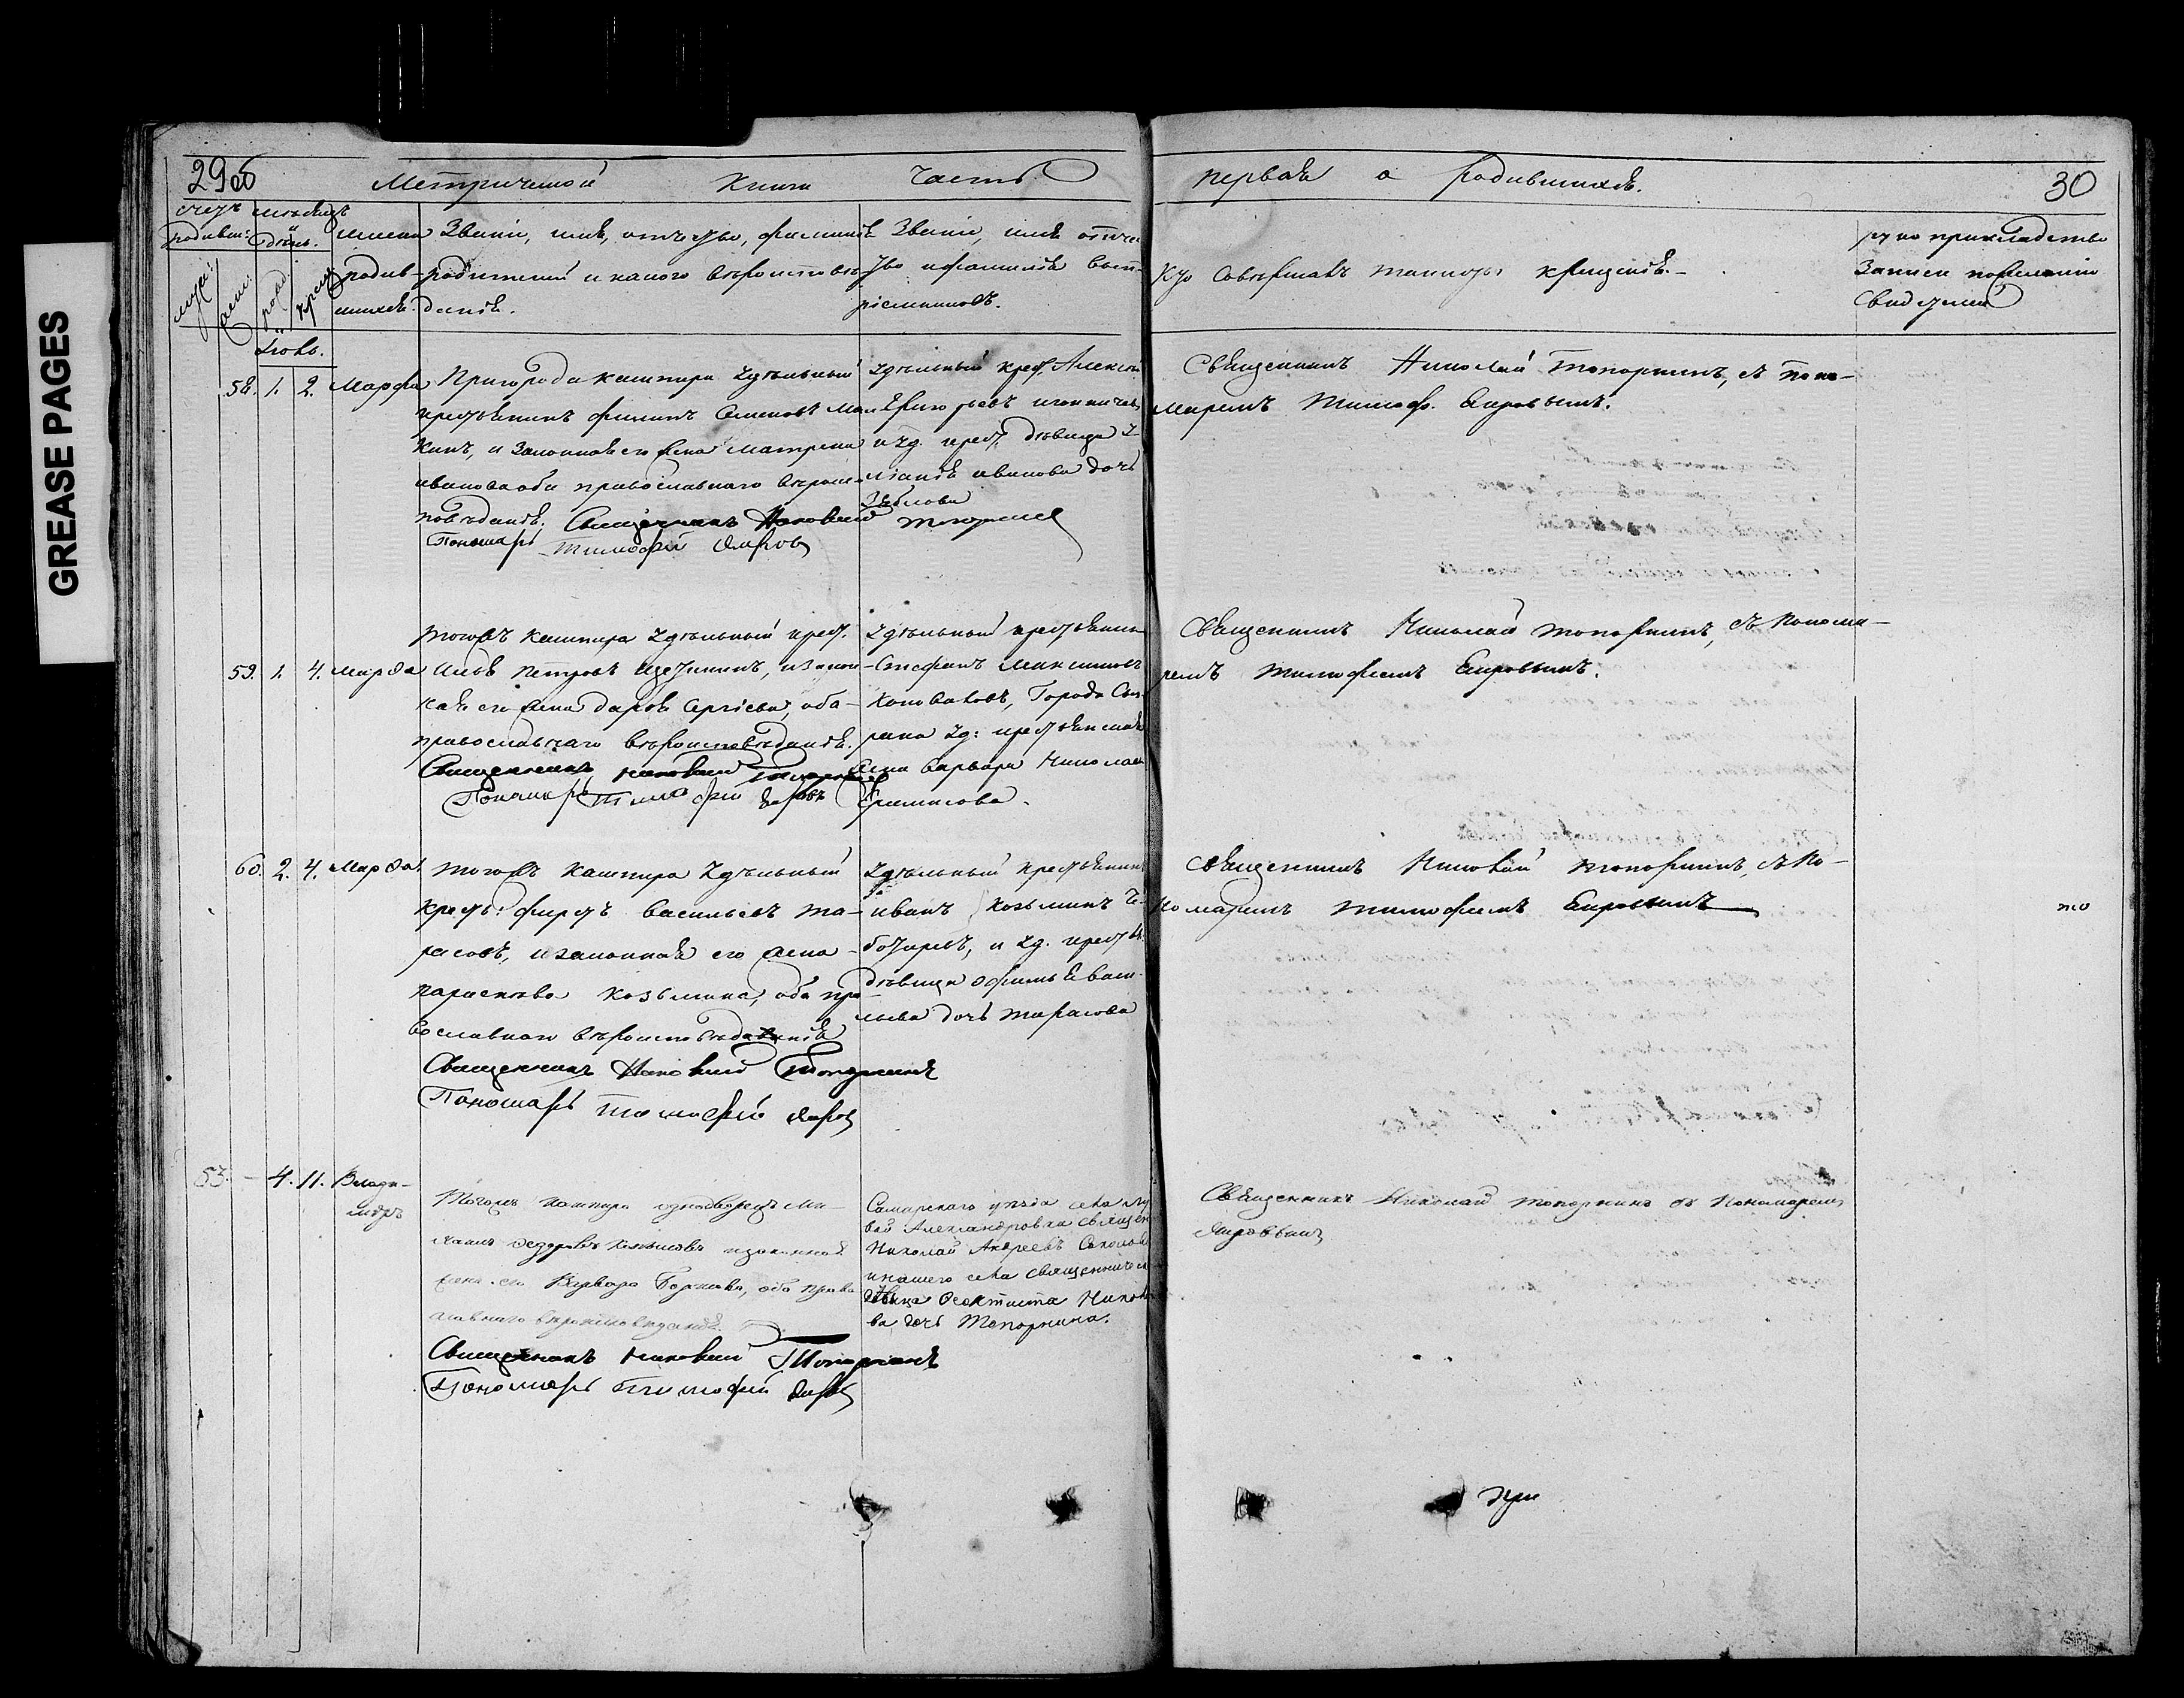 GREASE PAGES
29об
Метрической Книги Часть
первая о родившихся.
30
счетъ мѣсяцъ
родивш: и день.
муж: жен: рожд. крещ
Имена
родив-
шихся.
Званіе, имя, отчество, фамилія
родителей и какого вѣроисповѣ-
данія.
Званіе, имя отче-
ство и фамилія восп-
ріемниковъ.
Кто совершалъ таинство крещенія.-
рукоприкладство
записи по желанію
свидетелей
Іюль.
58. 1. 2. Марфа
Пригорода Кашпира удѣльный
крестьянинъ Филипъ Семеновъ
кинъ, и законная его жена Матрена
иванова оба православнаго вѣрои-
повѣданія. Священникъ Николай Топорнинъ
Пономарь Тимофей Яировъ
удѣльный крест. Алексѣй
и уд. крест. дѣвица У-
ліанія иванова дочь
Священникъ Николай Топорнинъ, съ поно-
маремъ Тимоф. Еировымъ.
59. 1. 4. Марфа
Тогожъ Кашпира удѣльный крест.
Илья Петровъ Щетининъ, и закон-
ная его жена Дарья Сергіева, оба
православнаго вѣроисповѣданія.
Священникъ Николай Топорнинъ
Пономарь Тимофей Яировъ
удѣльный крестьянинъ
Стефанъ Максимовъ
Коноваловъ, Города Сыз-
рана уд: крестьянская
жена Варвара Николаева
Священникъ Николай Топорнинъ, съ Понома-
ремъ Тимофеемъ Еировымъ.
60. 2. 4. Марфа
Тогожъ Кашпира удѣльный
крест: Фирсъ Васильевъ Та-
расовъ, и законная его жена
параскева Козьмина, оба пра-
вославнаго вѣроисповѣданія
Священникъ Николай Топорнинъ
Пономарь Тимофей Яировъ
Удѣльный крестьянинъ
иванъ Козьминъ Че-
ботаревъ, и уд. крестья.
дѣвица Офимья Васи-
льева дочь Тарасова
Священникъ Николай Топорнинъ, съ По-
номаремъ Тимофеемъ Еировымъ
то
53. - 4. 11. Влади-
міръ
Тогожъ Кашпира однодворецъ Ми-
хаилъ Федоровъ и законная
жена его Варвара оба право-
славнаго вѣроисповѣданія.
Священникъ Николай Топорнинъ
Пономарь Тимофей Яировъ
Самарскаго уѣзда села
вой Александровки священ
Николай Андреевъ Соколовъ
и нашего села священническ
дѣвица Феоктиста Николае
ва дочь Топорнина.
Священникъ Николай Топорнинъ съ Пономаремъ
Яировымъ
при